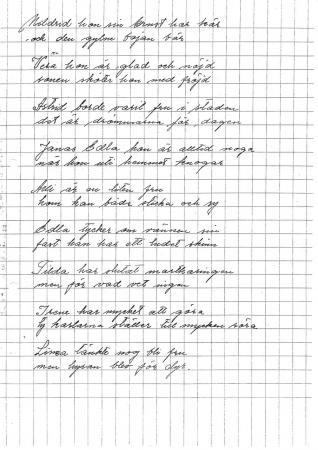 Mildred hon sin Ernst har kvar
och den gyllne bojan bär
Vera hon är glad och nöjd
sonen sköter hon med fröjd
Astrid borde varit fru i staden
det är drömmarna för dagen
Janas Edla hon är alltid noga
när hon uti hemmet knogar
är en liten fru
hon kan både sticka och sy
Edla tycker om vännen sin
fast han har ett ludet skinn
Tilda har slutat
men för vad vet ingen
Irene har mycket att göra
ty karlarna ställer till mycken röra
Linea tänkte nog bli fru
men hyran blev för dyr.